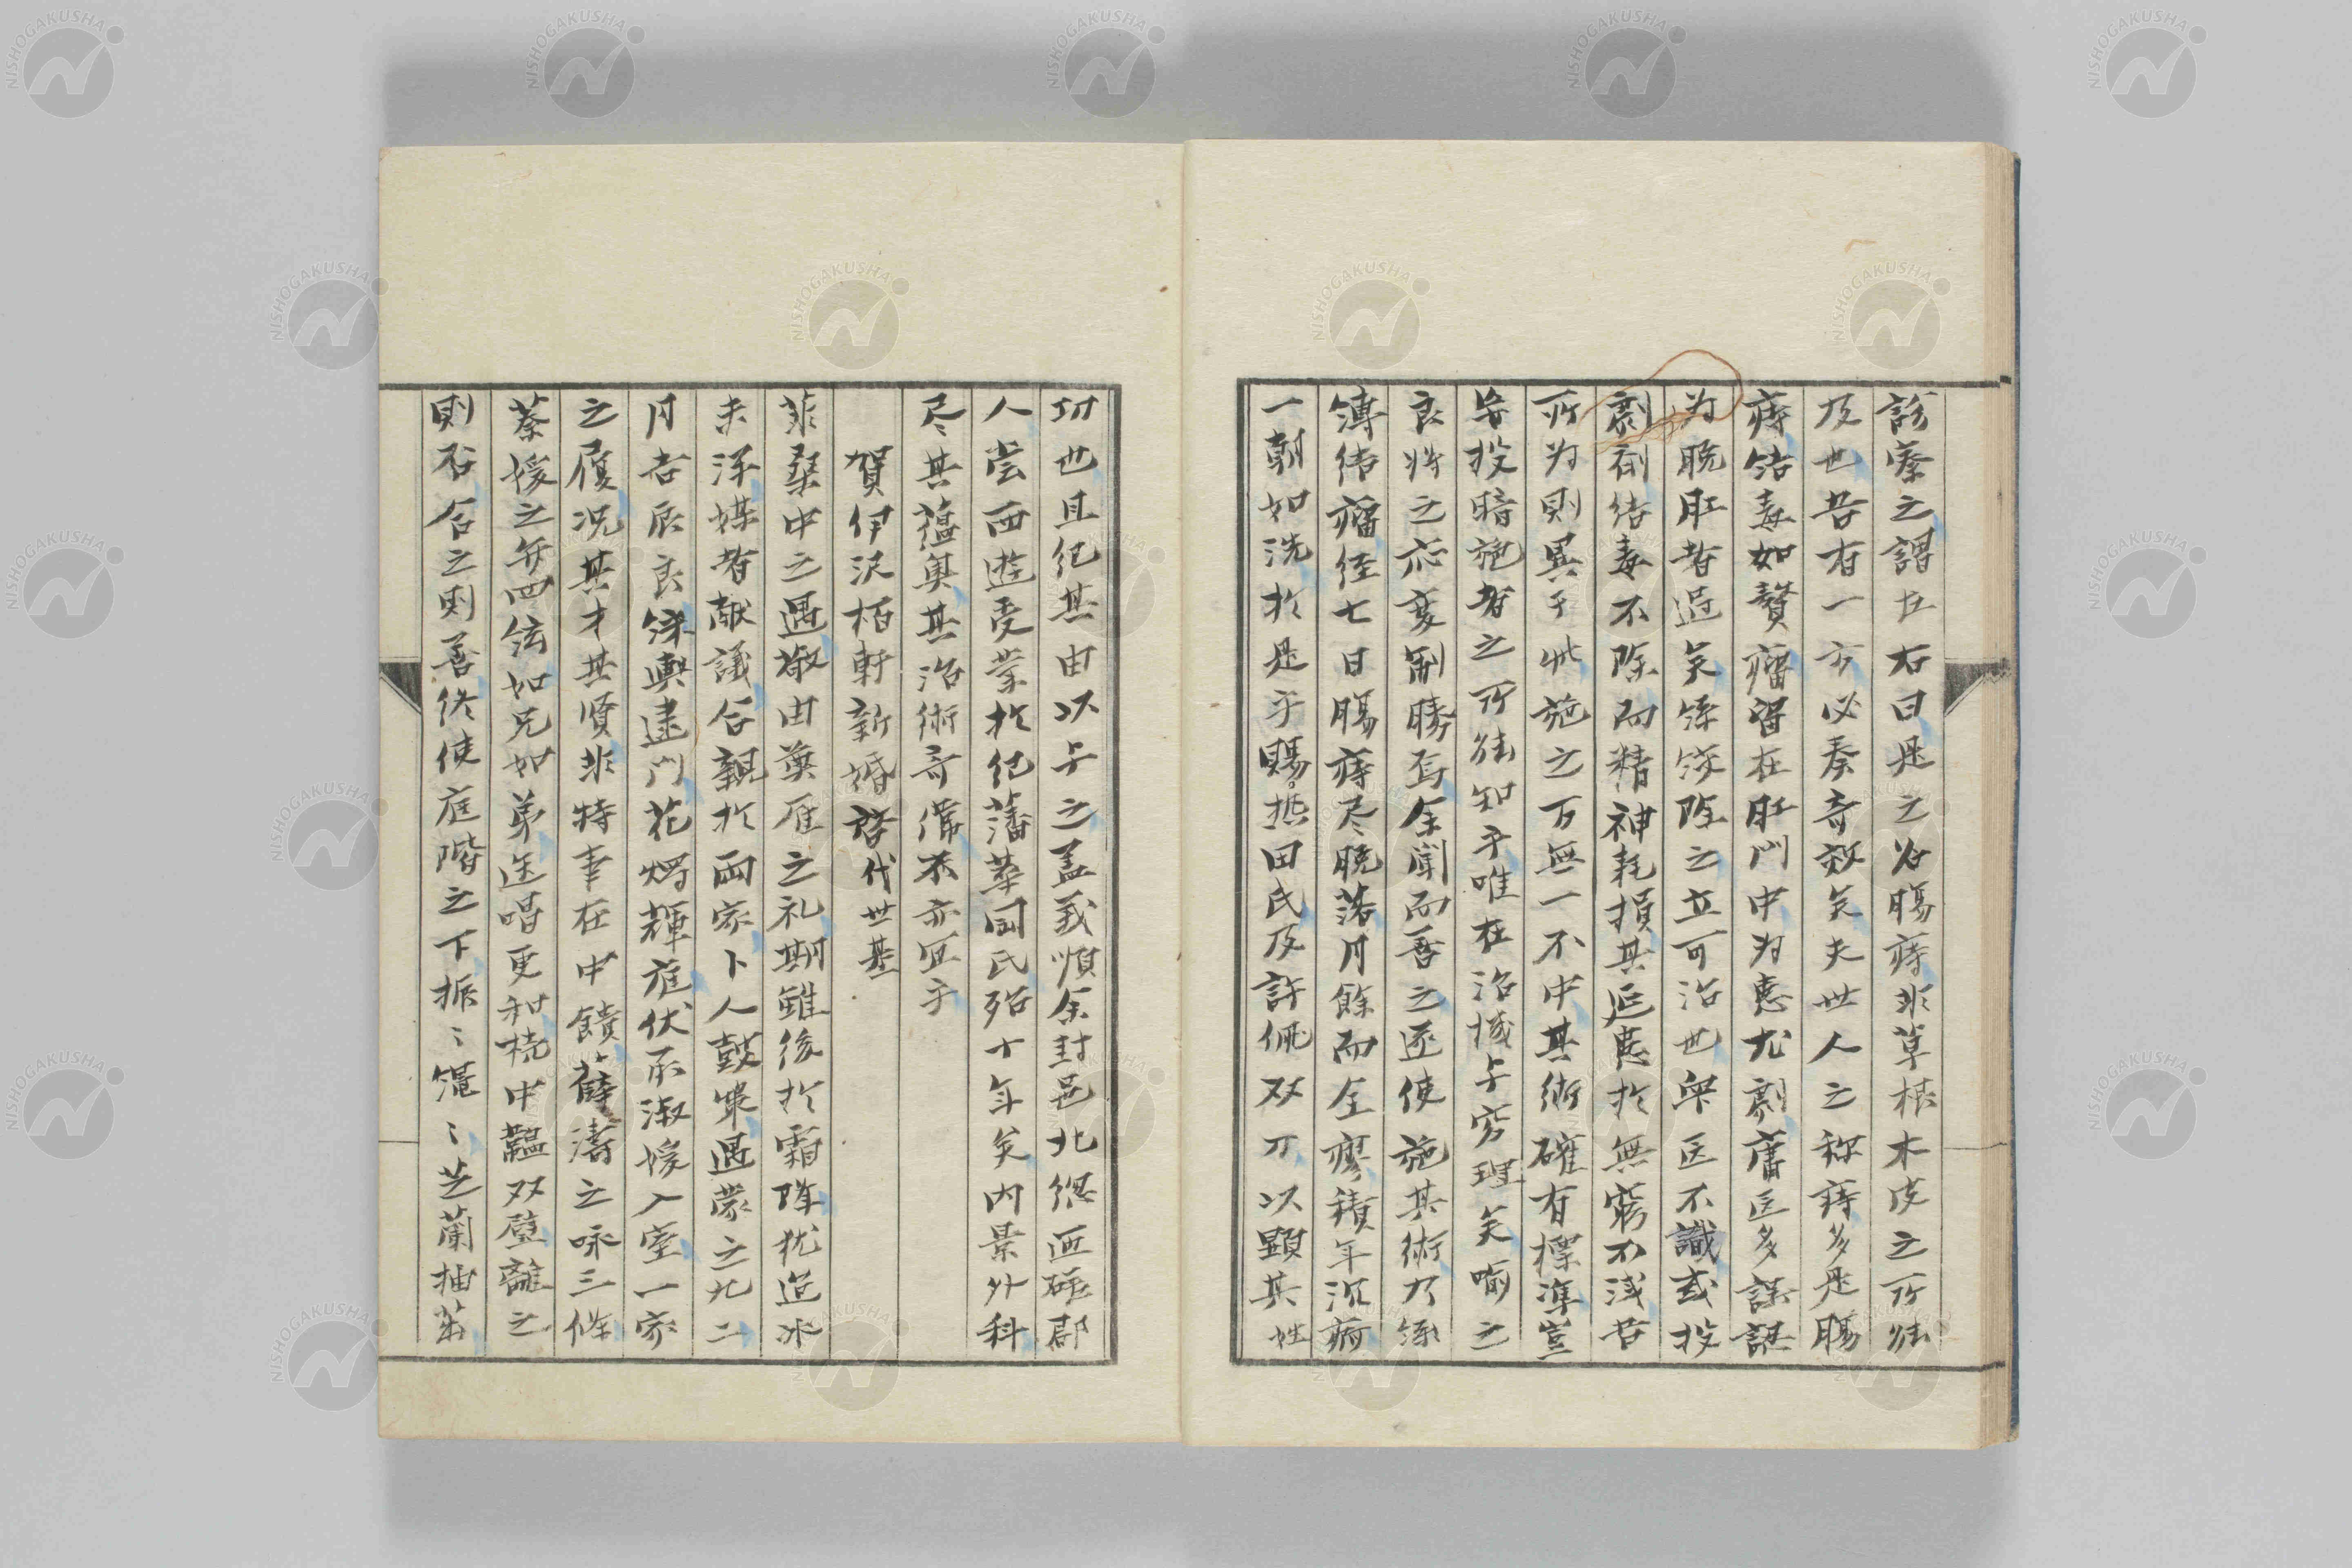 診察之謂左右曰是之為腸痔非草根木皮之所能
及也吾有一方必奏奇效矣夫世人之称痔多是腸
痔結毒如贅瘤留在肛門中为患尤劇庸医多誤謀
为脱肛者過矣除之立可治也舉医不識或投
劇劑結毒不除而精神耗損其延患於無窮不浅吾
所为則異于此施之万無一不中其術確有標準豈
与投暗施者之所能知乎唯在治域与窮理矣喻之
良将之応変制勝焉余聞而善之遂使施其術乃
結瘤経七日腸痔尽脱落月餘而全瘳積年沉痾
一朝如洗於是乎賜。田氏及許佩双刀以顕其姓
功也且紀其由以与之盖我順余封邑北総匝瑳郡
人嘗西遊受業於紀藩華岡氏殆十年矣内景外科
尽其蘊奥其治術奇備不亦宜乎
賀伊沢栢軒新婚啓代世基
菲桑中之遇敬由奠雁之礼期雖後於霜降犹迨冰
未泮媒者献議合親於両家卜人鼓策遇蒙之九二
月吉辰良錦輿逮門花燭輝庭伏承淑媛入室一家
之履况其才其賢非特事在中饋薛濤之咏三條
蔡媛之弁四絃如兄如弟迭唱更和梳中韞双璧離之
則否合之則善終使庭階之下振〻縄〻芝蘭抽茁
NISHOGAKUSHA